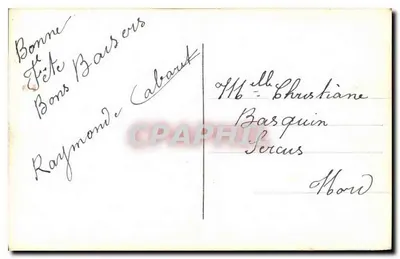 Bonne
Fête
Bons Baisers
Raymonde Cabaret
Melle Christiane
Basquin
Sercus
Nord
CPAPHIL